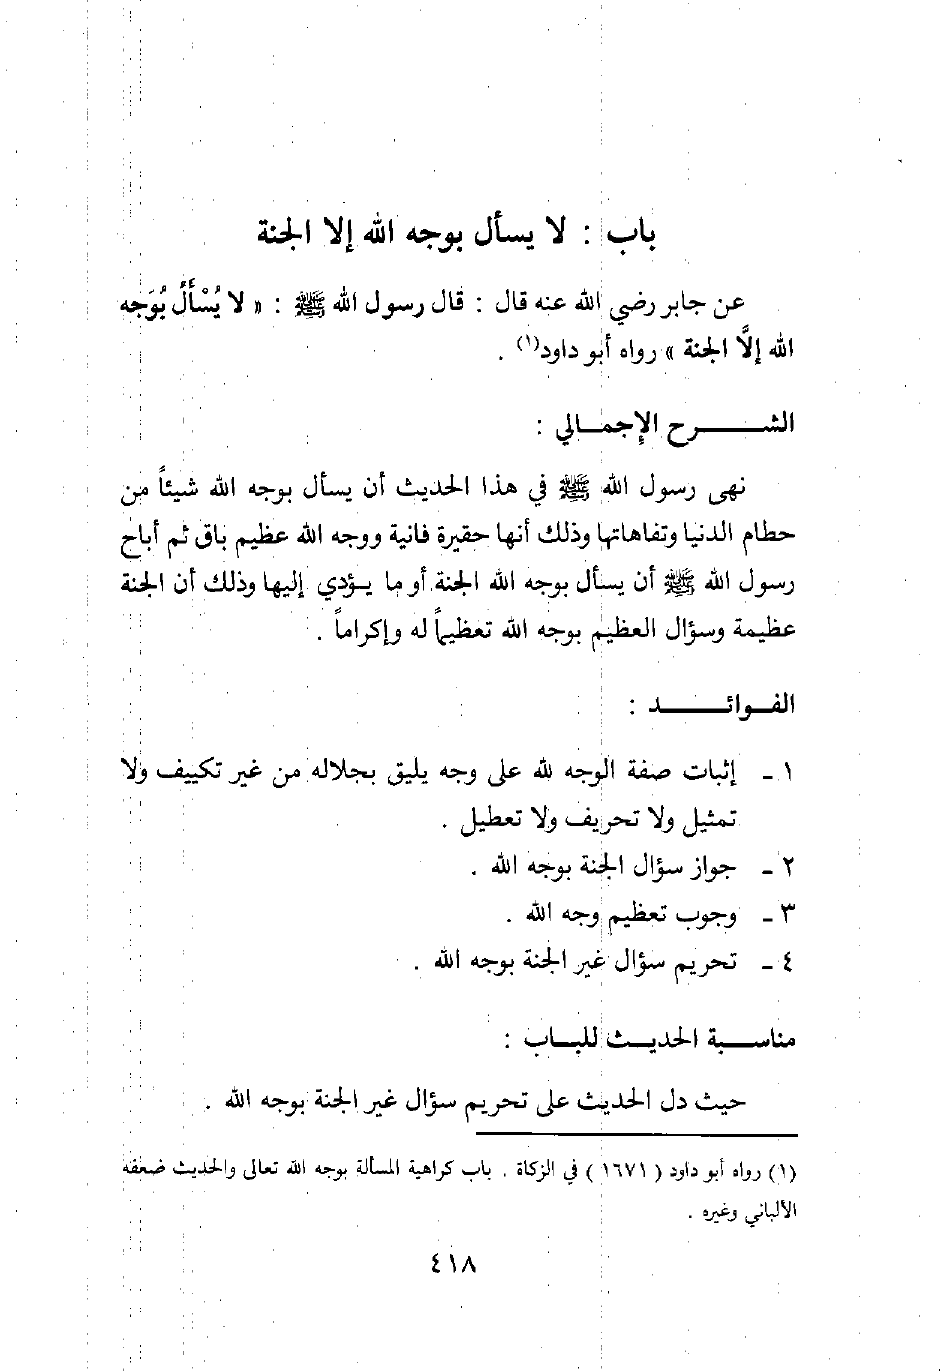 باب : لا يسأل بوجه الله إلا الجنة
عن جابر رضي الله عنه قال : قال رسول الله ﷺ : « لا يُسْأَلُ بُوَجه
الله إلَّا الجنة » رواه أبو داود(١) .
الشـــــرح الإجمـالي :
نهى رسول الله ﷺ في هذا الحديث أن يسأل بوجه الله شيئاً من
حطام الدنيا وتفاهاتها وذلك أنها حقيرة فانية ووجه الله عظيم باق ثم أباح
رسول الله ﷺ أن يسأل بوجه الله الجنة أو ما يـؤدي إليها وذلك أن الجنة
عظيمة وسؤال العظيم بوجه الله تعظيماً له وإكراماً .
الفـوائـــــد :
١ ـ إثبات صفة الوجه لله على وجه يليق بجلاله من غير تكييف ولا
تمثيل ولا تحريف ولا تعطيل .
٢ ـ جواز سؤال الجنة بوجه الله .
٣ ـ وجوب تعظيم وجه الله .
٤ ـ تحريم سؤال غير الجنة بوجه الله .
مناســـبة الحديـــث للبـــاب :
حيث دل الحديث على تحريم سؤال غير الجنة بوجه الله .
(١) رواه أبو داود ( ١٦٧١ ) في الزكاة . باب كراهية المسألة بوجه الله تعالى والحديث ضعفه
الألباني وغيره .
٤١٨